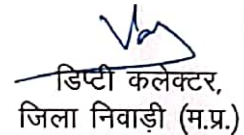 डिप्टी कलेक्टर,
जिला निवाड़ी (म.प्र.)